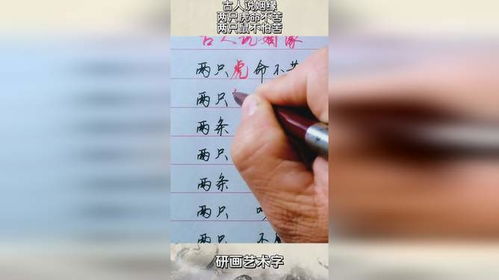 古人说姻缘
两只虎命不苦
两只鼠不怕苦
古人说姻缘
两只虎命不苦
两只
两条
两只
两条
两只
两只
研画艺术字